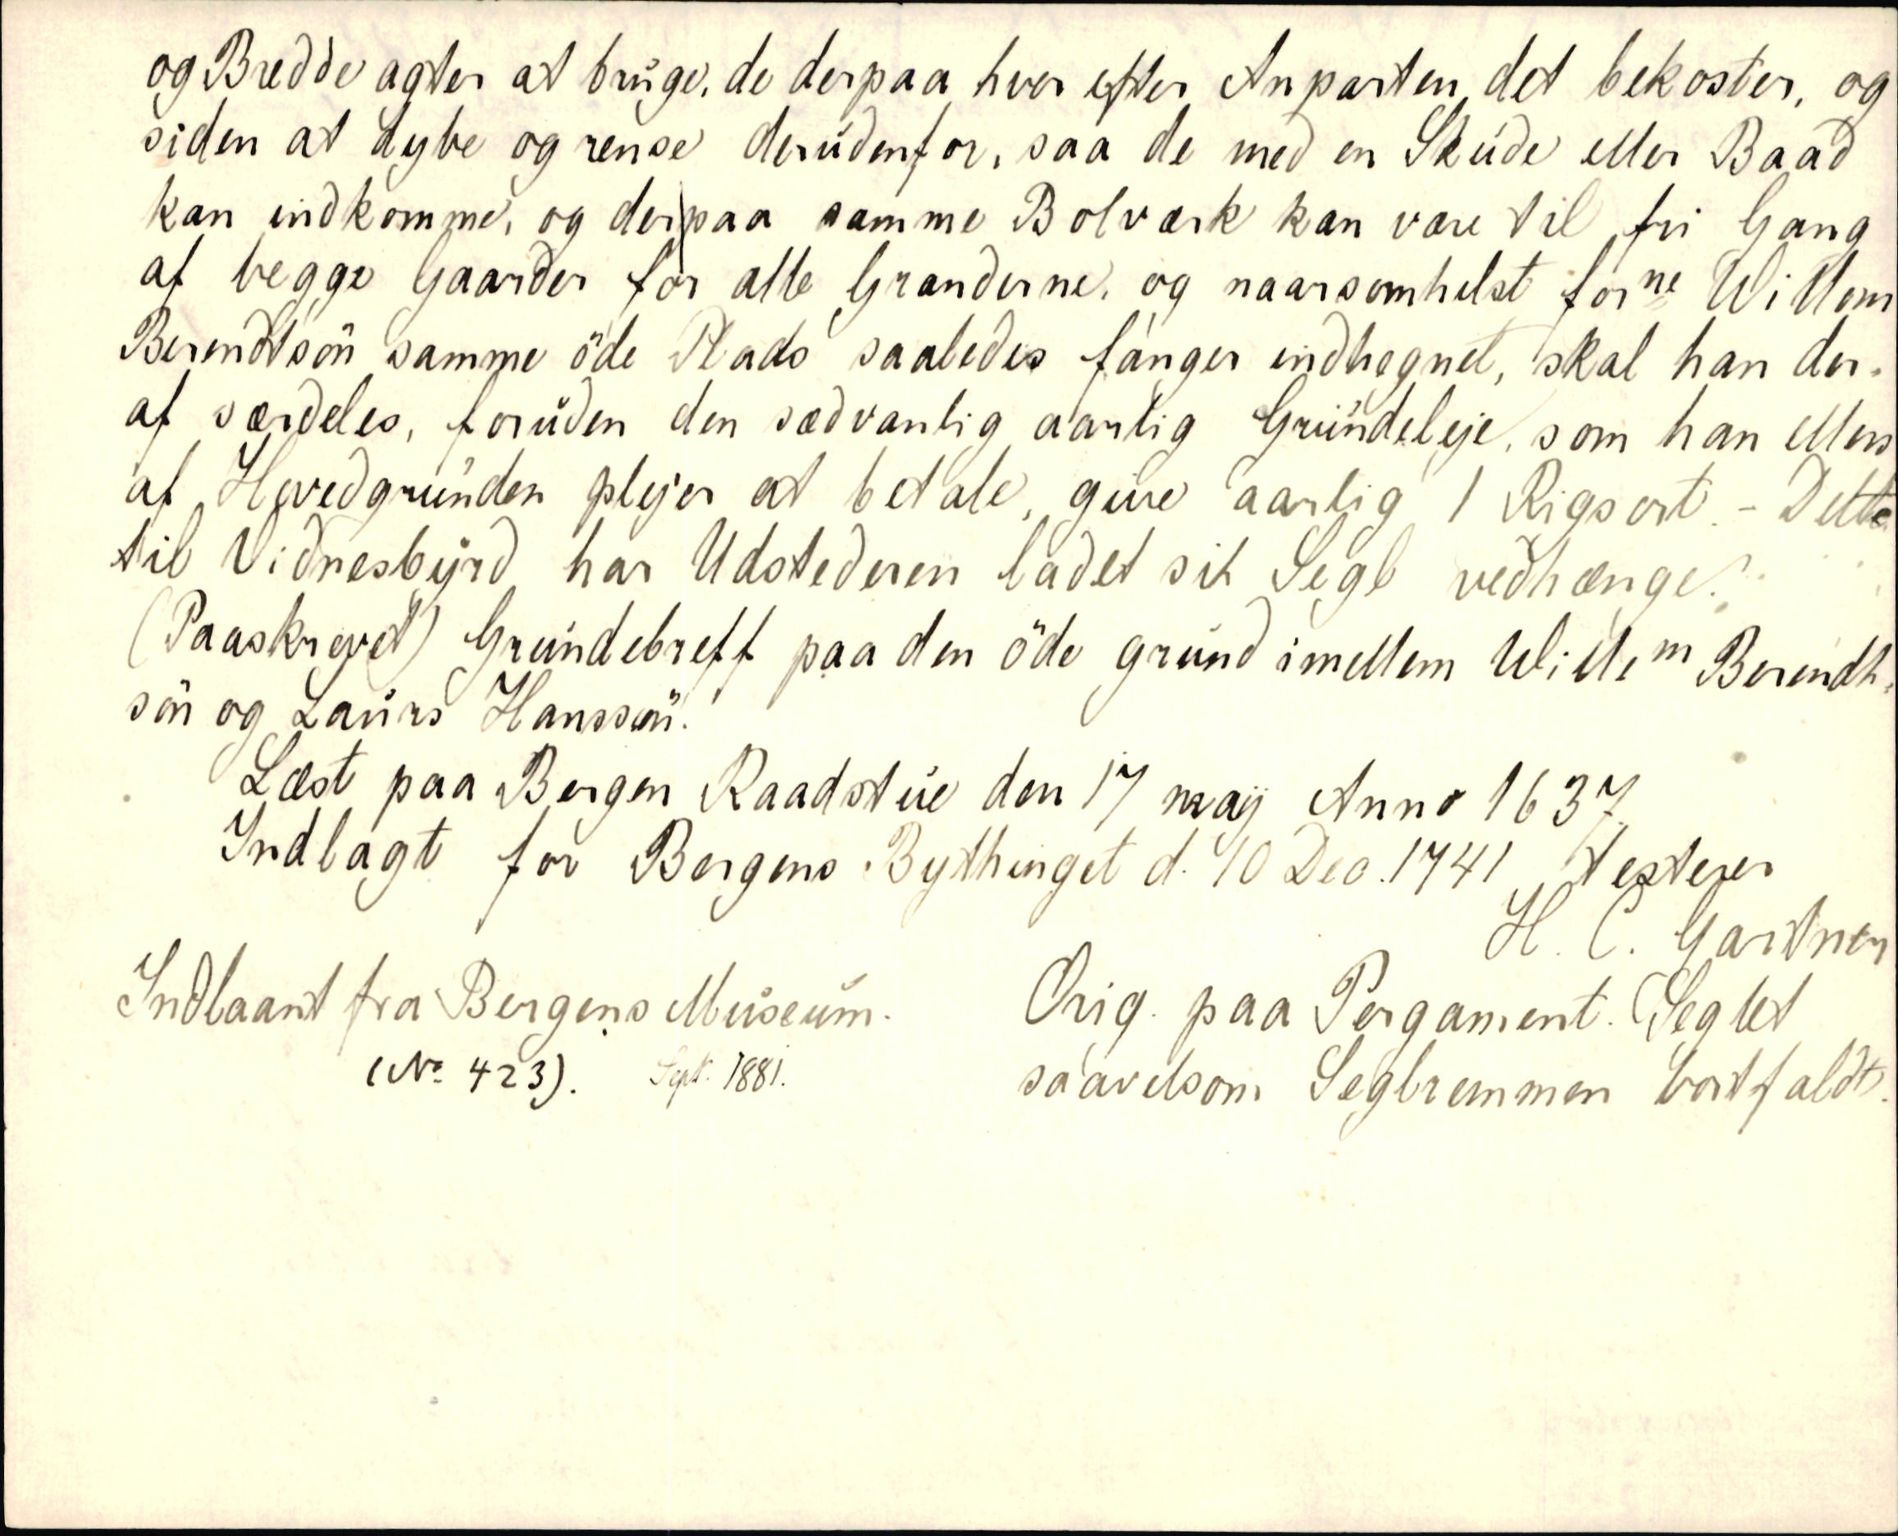 og Bredde agter at bruge, de derpaa hver efter Anparten det bekoster, og
siden at dybe og rense derudenfor, saa de med en Skude eller Baad
kan indkomme, og der paa samme Bolværk kan være til fri Gang
af begge Gaarder for alle Granderne, og naarsomhelst forne Willem
Berendtsön samme öde Plads saaledes fanger indhegnet, skal han der-
af særdeles, foruden den sædvanlig aarlig Grundeleje, som han ellers
af Hovedgrunden plejer at betale, give aarlig 1 Rigsort. - Dette
til Vidnesbyrd har Udstederen ladet sit Segl vedhænge.
(Paaskrevet) Grundebreff paa den öde grund imellem Willem Berendt-
sön og Laurs Hanssön.
Læst paa Bergen Raadstue den 17 maij Anno 1637
Indlagt for Bergens Bythinget d. 10 Dec. 1741 testerer
H. C. Gartner
Indlaant fra Bergens Museum.
(No 423). Sept. 1881.
Orig. paa Pergament. Seglet
saavelsom Seglremmen bortfaldt.